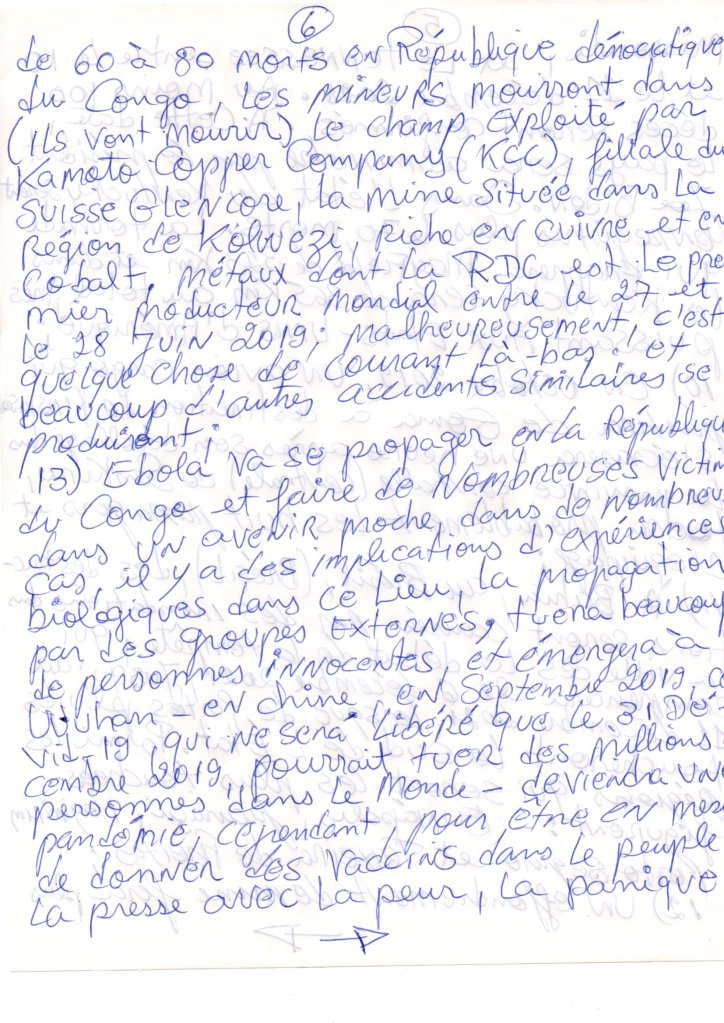 6
de 60 à 80 morts en République démocratique
du Congo, Les MINEURS mourront dans
(ils vont mourir) Le champ Exploité par
Kamoto Copper Company (KCC), filiale du
Suisse GLENCORE, La mine située dans La
Région de Kolwezi, Riche en cuivre et en
Cobalt, métaux dont La RDC est Le pre
mier producteur mondial entre le 27 et
Le 28 Juin 2019; malheureusement, c'est
quelque chose de courant Là-bas: et
beaucoup d'autres accidents similaires se
produiront;
13) Ebola va se propager en La République
du Congo et faire de nombreuses victim
dans un avenir proche, dans de nombreu
cas, il y a des implications d'expériences
biologiques dans ce Lieu, La propagation
par des groupes EXTERNES, tuera beaucoup
de personnes INNOCENTES et émergera à
Wuhan - en chine en Septembre 2019, Co
vid_19, qui ne sera Libéré que le 31 Dé-
cembre 2019, pourrait tuer des millions
personnes, dans Le monde - deviendra une
pandémie, cependant, pour être en mes
de donner des vaccins dans Le peuple
La presse avec La peur, La panique